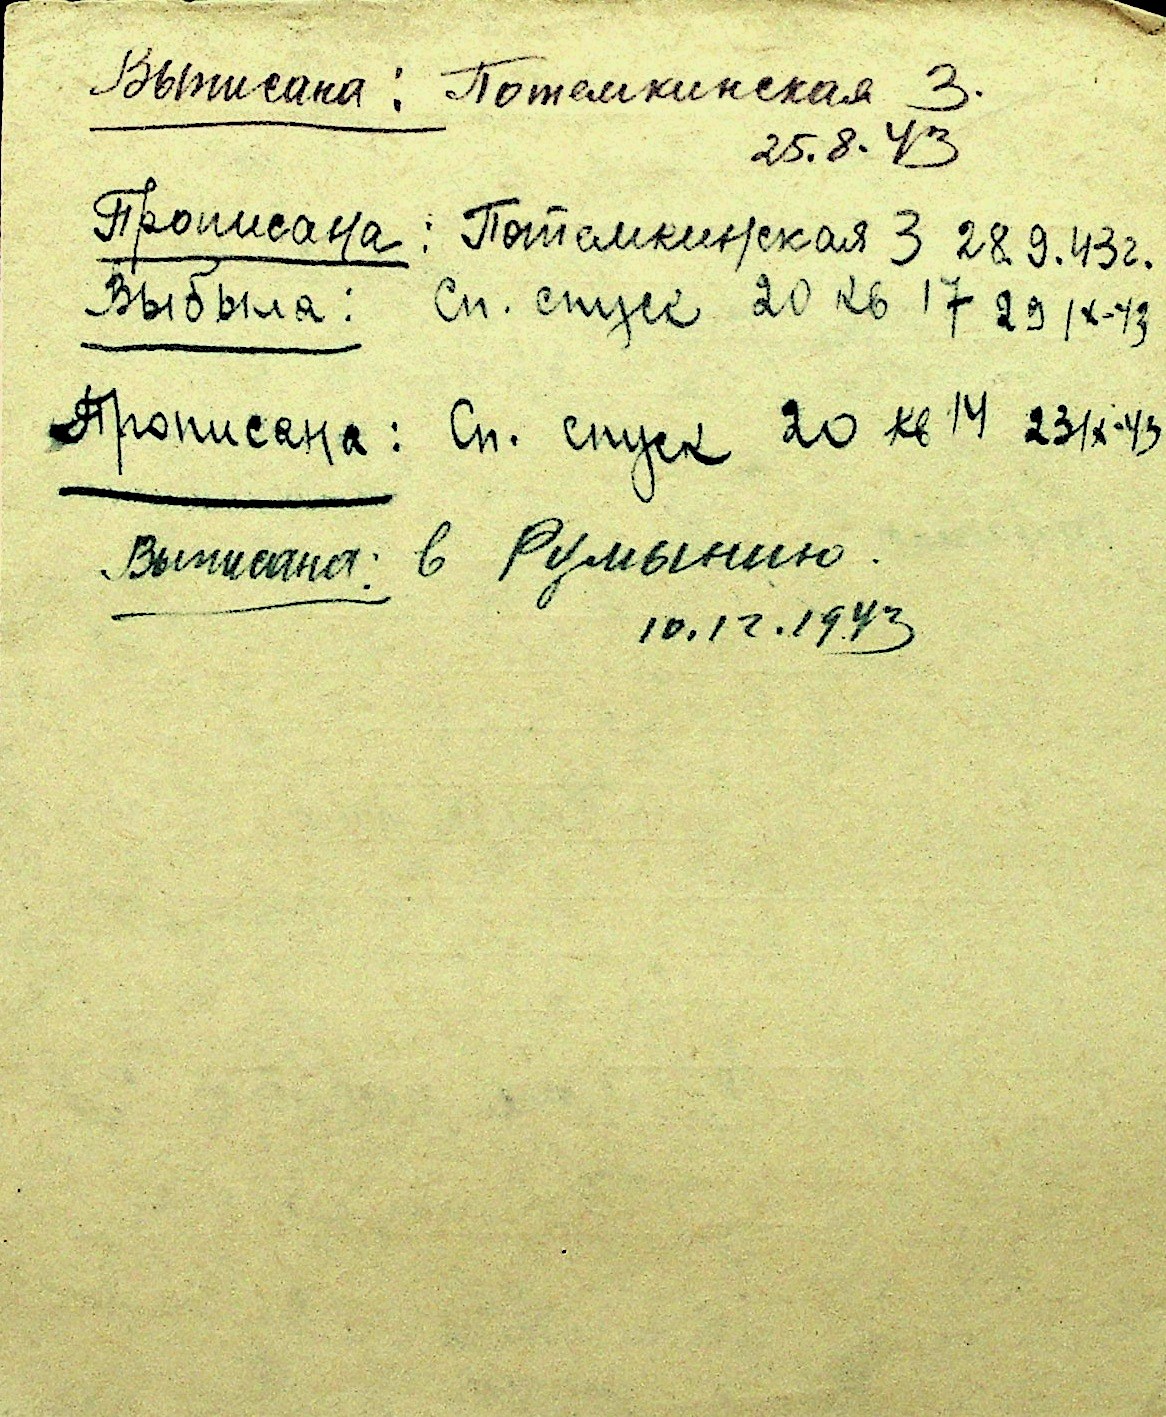 Выписана: Потемкинская 3.
25.8.43
Прописана: Потемкинская 3 28.9.43г.
Выбыла: Сп. спуск 20 кв 17 29 IX-43
Прописана: Сп. спуск 20 кв 14 23 IX-43
Выписана: в Румынию.
10.12.1943